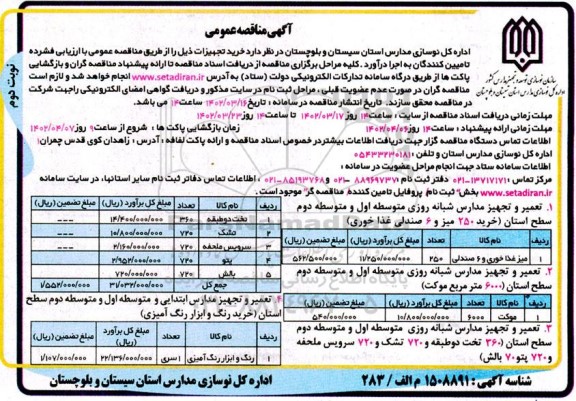 آگهی مناقصه عمومی
نوبت دوم
سازمان نوسازی، توسعه و تجهیز مدارس کشور
اداره کل نوسازی مدارس استان سیستان و بلوچستان
اداره کل نوسازی مدارس استان سیستان و بلوچستان در نظر دارد خرید تجهیزات ذیل را از طریق مناقصه عمومی با ارزیابی فشرده
تامین کنندگان به اجرا درآورد. کلیه مراحل برگزاری مناقصه از دریافت اسناد مناقصه تا ارائه پیشنهاد مناقصه گران و بازگشایی
پاکت ها از طریق درگاه سامانه تدارکات الکترونیکی دولت (ستاد) به آدرس www.setadiran.ir انجام خواهد شد و لازم است
مناقصه گران در صورت عدم عضویت قبلی، مراحل ثبت نام در سایت مذکور و دریافت گواهی امضای الکترونیکی راجهت شرکت
در مناقصه محقق سازند. تاریخ انتشار مناقصه در سامانه: تاریخ ۱۴۰۲/۰۳/۱۶ ساعت ۱۴ می باشد.
مهلت زمانی دریافت اسناد مناقصه از سایت: ساعت ۱۴ روز ۱۴۰۲/۰۳/۱۷ تا ساعت ۱۴ روز ۱۴۰۲/۰۳/۲۳
مهلت زمانی ارائه پیشنهاد: ساعت ۱۴ روز ۱۴۰۲/۰۴/۰۶ زمان بازگشایی پاکت ها: شروع از ساعت ۹ روز ۱۴۰۲/۰۴/۰۷
اطلاعات تماس دستگاه مناقصه گزار جهت دریافت اطلاعات بیشتر در خصوص اسناد مناقصه و ارائه پاکت لفافه: آدرس: زاهدان کوی قدس چمران ۱
اداره کل نوسازی مدارس استان و تلفن: ۰۵۴۳۳۲۳۰۱۸۱
اطلاعات سامانه ستاد جهت انجام مراحل عضویت در سامانه:
مرکز تماس: ۱۳۷۱۷۱۷۱-۰۲۱ دفتر ثبت نام ۸۸۹۶۹۷۳۷-۰۲۱ و ۸۵۱۹۳۷۶۸-۰۲۱، اطلاعات تماس دفاتر ثبت نام سایر استانها، در سایت سامانه
www.setadiran.ir بخش "ثبت نام/ پروفایل تامین کننده/ مناقصه گر" موجود است.
۱. تعمیر و تجهیز مدارس شبانه روزی متوسطه اول و متوسطه دوم
سطح استان (خرید ۲۵۰ میز و ۶ صندلی غذا خوری)
ردیف نام کالا تعداد مبلغ کل برآورد (ریال) مبلغ تضمین (ریال)
۱ میز غذا خوری و ۶ صندلی ۲۵۰ ۱۱/۲۵۰/۰۰۰/۰۰۰ ۵۶۲/۵۰۰/۰۰۰
۲. تعمیر و تجهیز مدارس شبانه روزی متوسطه اول و متوسطه دوم
سطح استان (۶۰۰۰ متر مربع موکت)
ردیف نام کالا تعداد مبلغ کل برآورد (ریال) مبلغ تضمین (ریال)
۱ موکت ۶۰۰۰ ۱۰/۸۰۰/۰۰۰/۰۰۰ ۵۴۰/۰۰۰/۰۰۰
۳. تعمیر و تجهیز مدارس شبانه روزی متوسطه اول و متوسطه دوم
سطح استان (۳۶۰ تخت دوطبقه و ۷۲۰ تشک و ۷۲۰ سرویس ملحفه
و ۷۲۰ پتو ۷۰ بالش)
ردیف نام کالا تعداد مبلغ کل برآورد (ریال) مبلغ تضمین (ریال)
۱ تخت دوطبقه ۳۶۰ ۱۴/۴۰۰/۰۰۰/۰۰۰ ---
۲ تشک ۷۲۰ ۱۰/۸۰۰/۰۰۰/۰۰۰ ---
۳ سرویس ملحفه ۷۲۰ ۲/۱۶۰/۰۰۰/۰۰۰ ---
۴ پتو ۷۲۰ ۲/۹۵۲/۰۰۰/۰۰۰
۵ بالش ۷۲۰ ۷۲۰/۰۰۰/۰۰۰
جمع کل ۳۱/۰۳۲/۰۰۰/۰۰۰ ۱/۵۵۲/۰۰۰/۰۰۰
۴. تعمیر و تجهیز مدارس ابتدایی و متوسطه اول و متوسطه دوم سطح
استان (خرید رنگ و ابزار رنگ آمیزی)
ردیف نام کالا تعداد مبلغ کل برآورد (ریال) مبلغ تضمین (ریال)
۱ رنگ و ابزار رنگ آمیزی ۱ سری ۲۲/۱۳۶/۰۰۰/۰۰۰ ۱/۱۰۷/۰۰۰/۰۰۰
شناسه آگهی: ۱۵۰۸۸۹۱ م الف / ۲۸۳
اداره کل نوسازی مدارس استان سیستان و بلوچستان